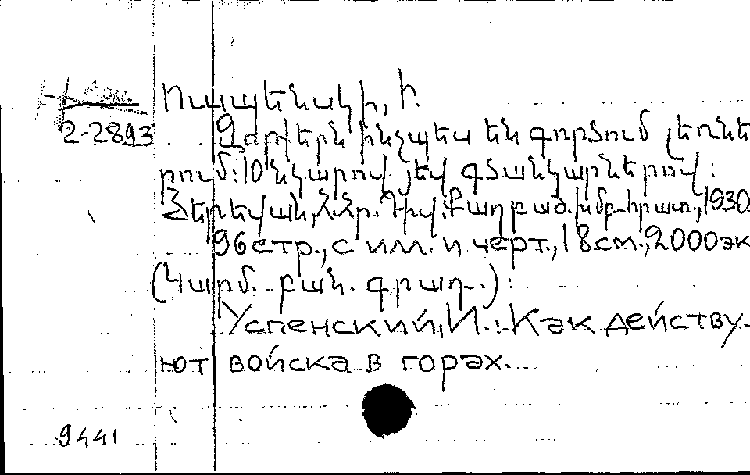 Ուսպենսկի, Ի.
2-2893 Զորքերն ինչպես են գործում լեռնե
րում: 10 նկարով յեվ գծանկարներով:
Յերեվան, Հ.Հր. Դիվ. Քաղբաժ. խմբ-հրատ., 1930
96 стр., с илл. и черт., 18 см., 2000 эк
(Կարմ. բան. գրադ.):
Успенский, И.: Как действу-
ют войска в горах.
9441